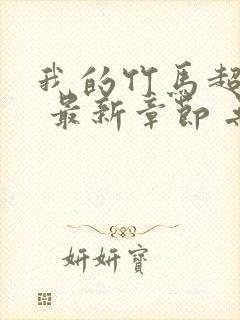 我的竹马超
最新章节
妍妍寶